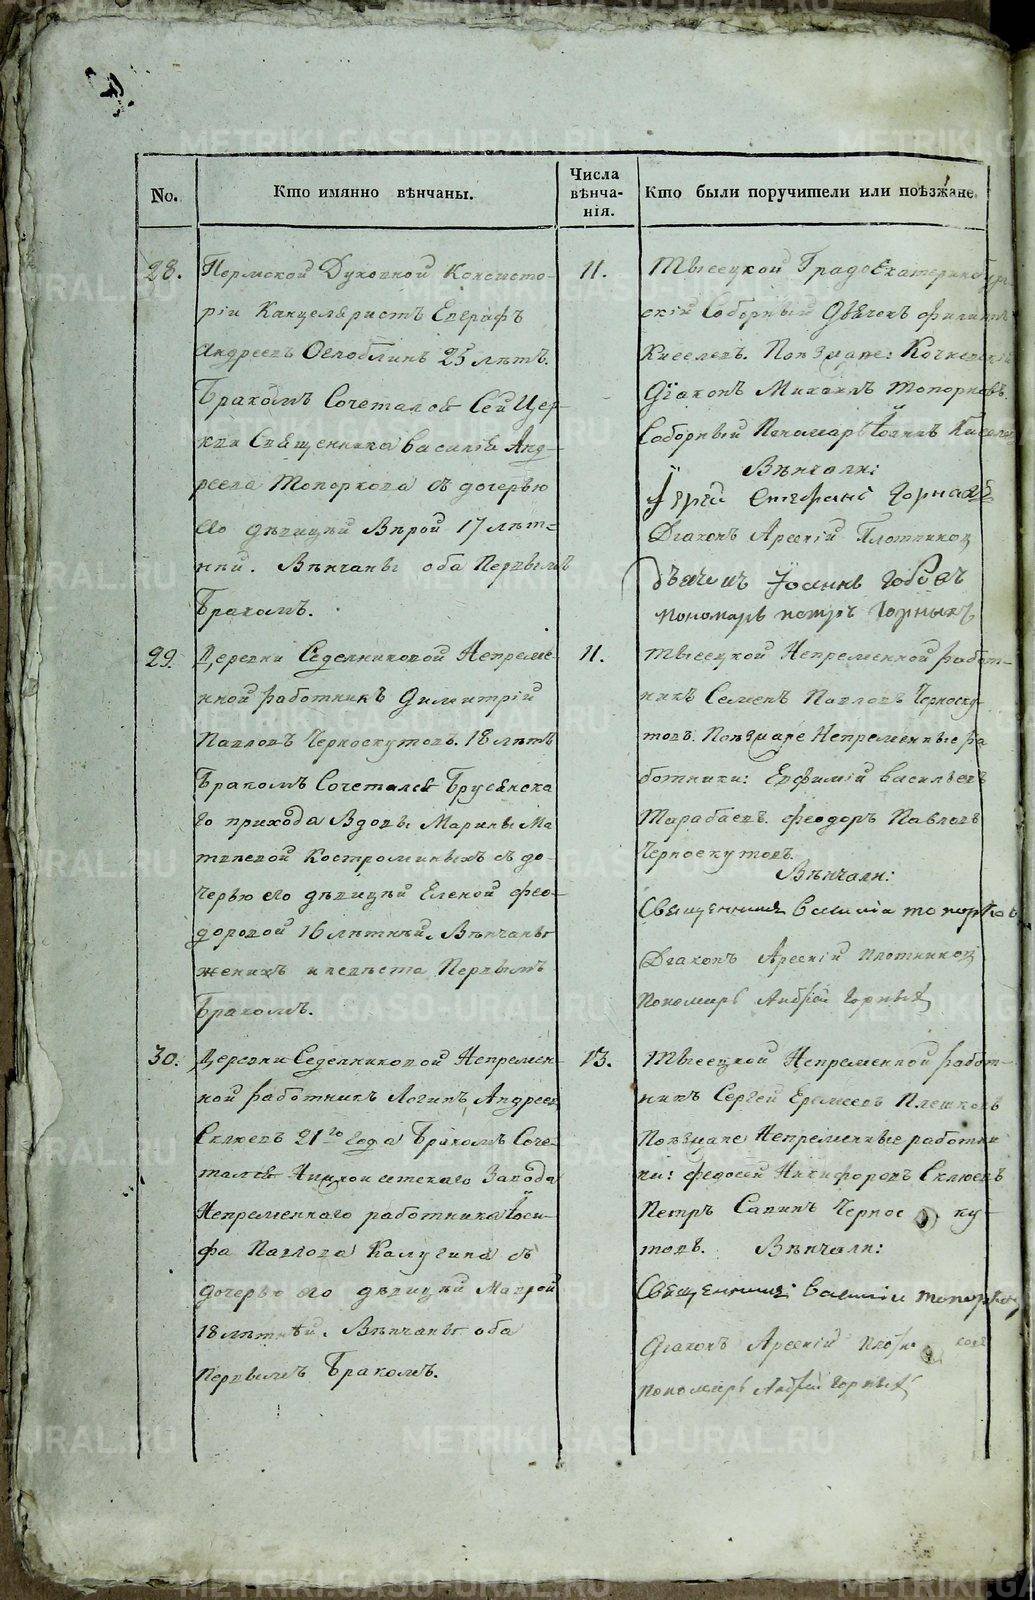 No.
Кто имянно вѣнчаны.
Числа вѣнча-нія.
Кто были поручители или поѣзжане.
28.
Пермской Духовной Консисто-
ріи Канцеляристъ Евграфъ
Андреевъ Оглоблинъ 25 лѣтъ.
Бракомъ Сочетался Сей Цер-
кви Священника Василія Анд-
реева Топоркова съ дочерью
его дѣвицей Вѣрой 17 лѣт-
ней. Вѣнчаны оба Первымъ
Бракомъ.
11.
Тысецкой Градоекатеринбур-
скій Соборный Дьячекъ Филиппъ
Киселевъ. Поезжане:
Діаконъ Михаилъ Топорковъ.
Соборный Пономарь Іоаннъ Киселев
Вѣнчали:
Іерей Стефанъ Горных
Діаконъ Арсений Плотников
Дьячекъ Іоаннъ
Пономарь Петръ Горныхъ
29.
Деревни Седелниковой Непреме-
нной работникъ Димитрій
Павловъ Черноскутовъ. 18 лѣтъ
Бракомъ Сочетался Брусянска
го прихода Вдовы Марины Ма
твеевой Костроминыхъ съ до-
черью его дѣвицей Еленой Фео-
доровой 16 лѣтней. Вѣнчаны
женихъ и невѣста Первымъ
Бракомъ.
11.
Тысецкой Непременной работ-
никъ Семенъ Павловъ Черноску-
товъ. Поезжане Непременные ра
ботники: Евфимій Васильевъ
Тарабаевъ. Феодоръ Павловъ
Черноскутовъ.
Вѣнчали:
Священникъ Василій Топорков
Діаконъ Арсений Плотников
Пономарь Андрей Горных
30.
Деревни Седелниковой Непремен-
ной работникъ Логинъ Андреев
Склюевъ 21го года Бракомъ Соче-
тался Нижноисетскаго Завода
Непременнаго работника Іоси-
фа Павлова Калугина съ
дочерью его дѣвицей Маврой
18 лѣтней. Вѣнчаны оба
Первымъ Бракомъ.
13.
Тысецкой Непременной работ-
никъ Сергей Еремеевъ Плешковъ
Поезжане Непременные работни
ки: Федосей Никифоровъ Склюевъ
Петръ Савинъ Черноску-
товъ. Вѣнчали:
Священникъ Василій Топорков
Діаконъ Арсений Плотников
Пономарь Андрей Горных
METRIKI.GASO-URAL.RU